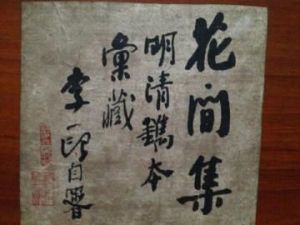 花間集
明清鐫本
彙藏
李一氓自署